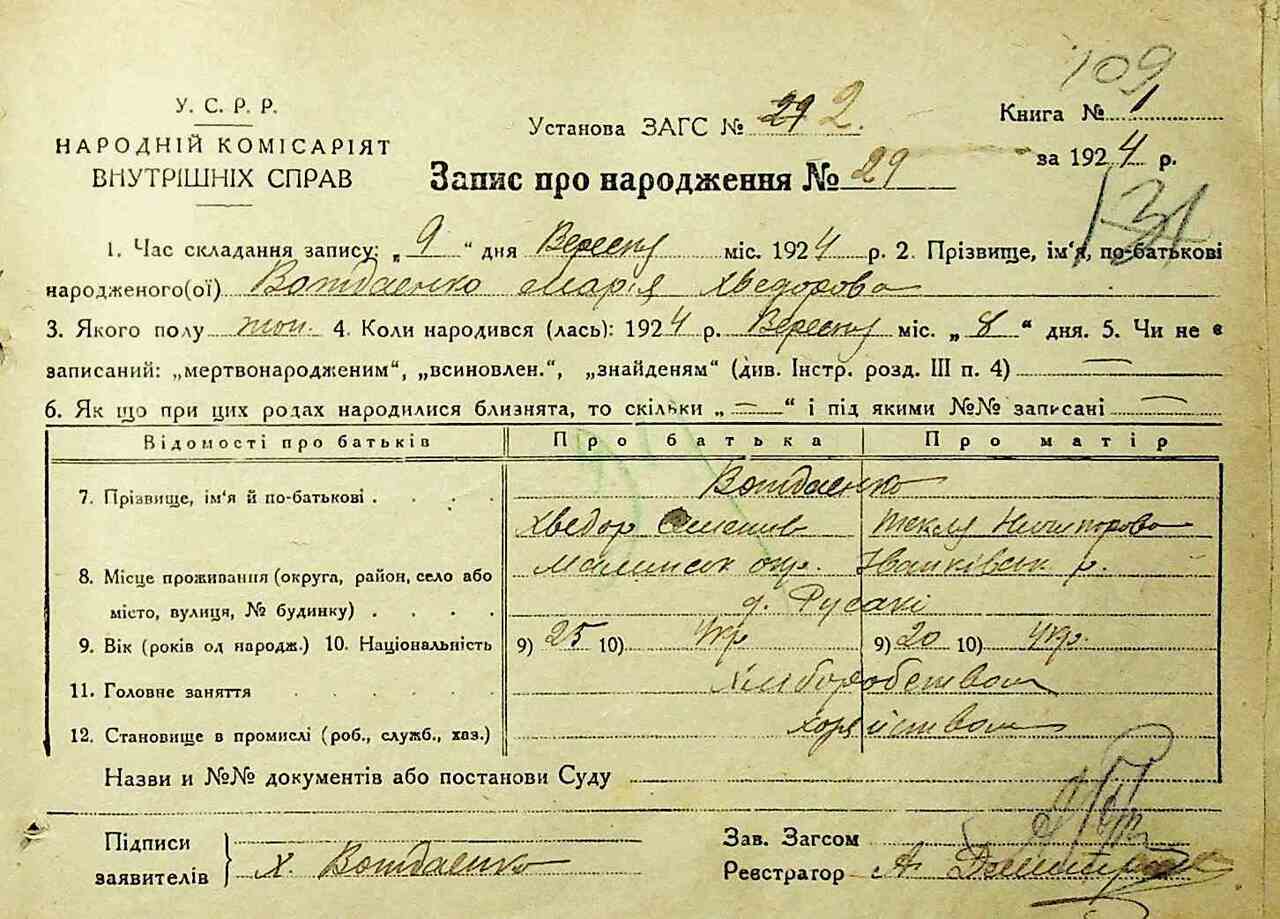 109
У. С. Р. Р.
НАРОДНІЙ КОМІСАРІЯТ
ВНУТРІШНІХ СПРАВ
Установа ЗАГС № 29 2.
Книга №
за 1924 р.
Запис про народження № 29
131
1. Час складання запису: „ 9 “ дня Вересня міс. 1924 р. 2. Прізвище, ім'я, по-батькові
народженого(ої) Марія Хведорова
3. Якого полу жін. 4. Коли народився (лась): 1924 р. Вересня міс. „ 8 “ дня. 5. Чи не є
записаний: „мертвонародженим“, „всиновлен.“, „знайденям“ (див. Інстр. розд. III п. 4) —
6. Як що при цих родах народилися близнята, то скільки „ — “ і під якими №№ записані —
Відомості про батьків Про батька Про матір
7. Прізвище, ім'я й по-батькові . . . .
Хведор Текля
8. Місце проживання (округа, район, село або
місто, вулиця, № будинку) . . . .
окр. р.
д. Русакі
9. Вік (років од народж.) 10. Національність 9) 25 10) Укр 9) 20 10) Укр.
11. Головне заняття . . . . . Хліборобством
12. Становище в промислі (роб., служб., хаз.)
Назви и №№ документів або постанови Суду
Підписи
заявителів
Х.
Зав. Загсом
Реєстрагор А.